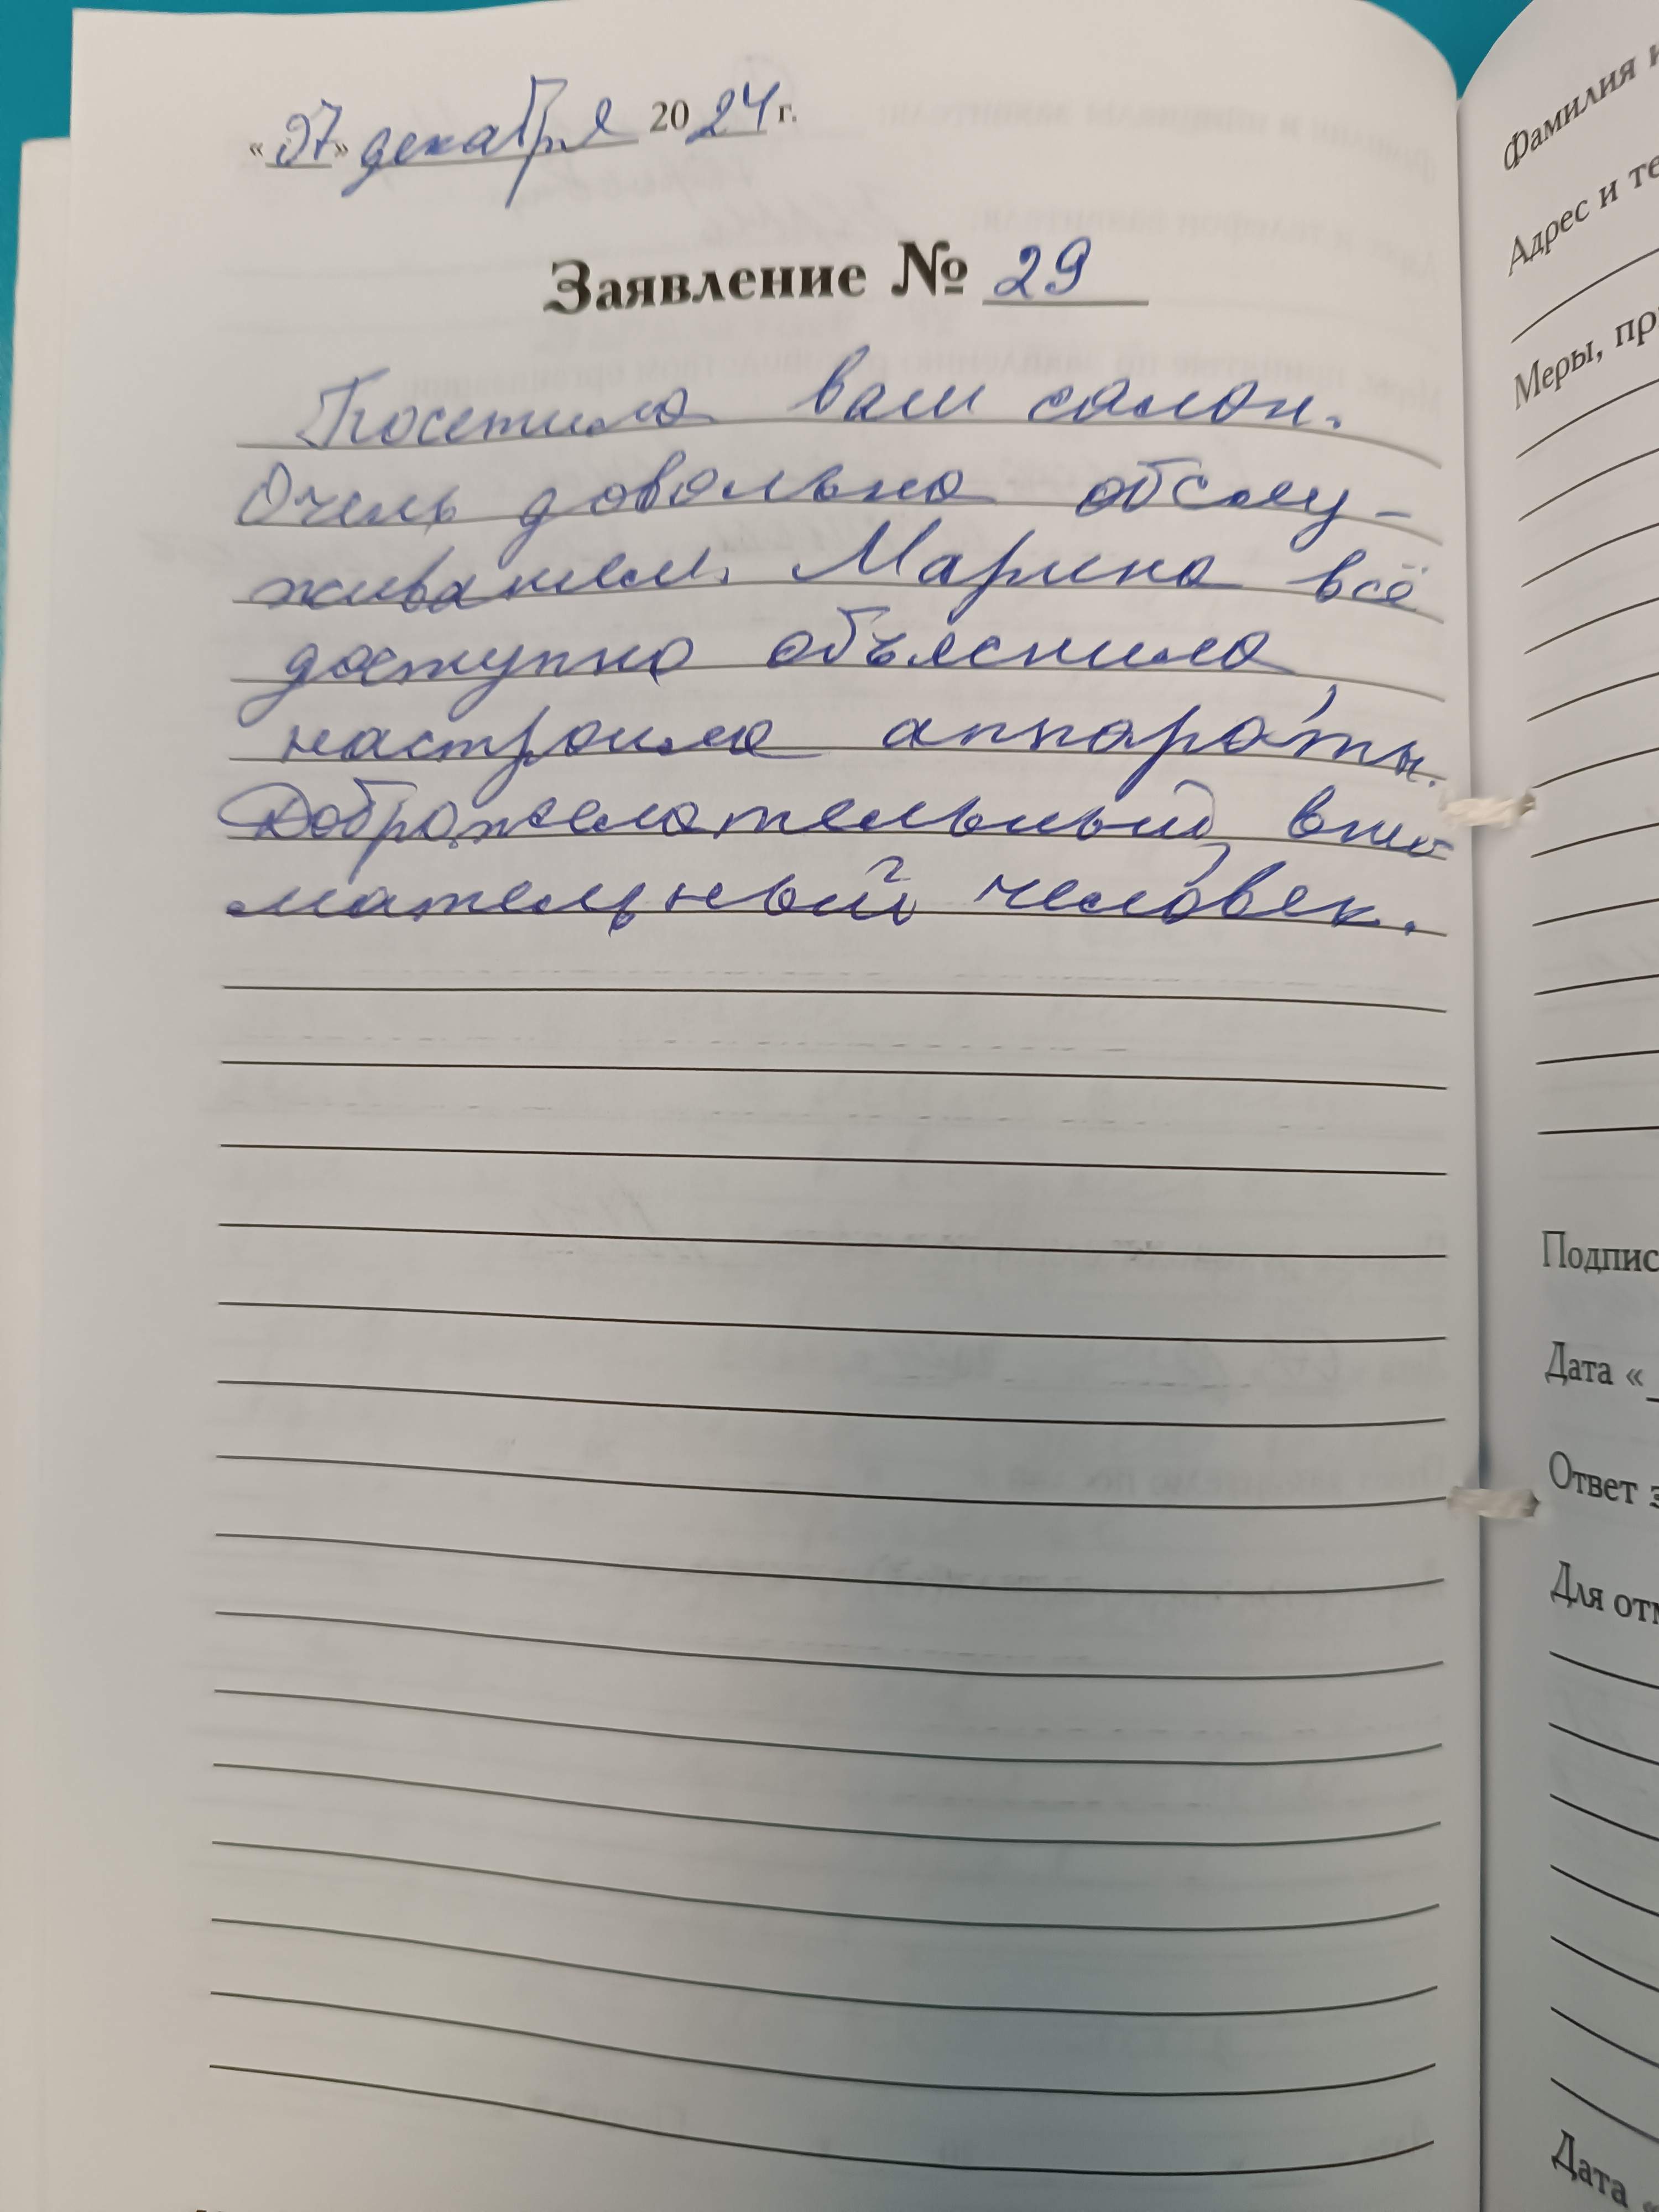 «27» декабря 2024 г.
Заявление № 29
Посетила ваш салон.
Очень довольна обслу-
живанием. Марина всё
доступно объяснила
настроила аппараты.
Доброжелательный вни
мательный человек.
Фамилия и
Адрес и те
Меры, пр
Подпис
Дата «
Ответ з
Для отм
Дата «